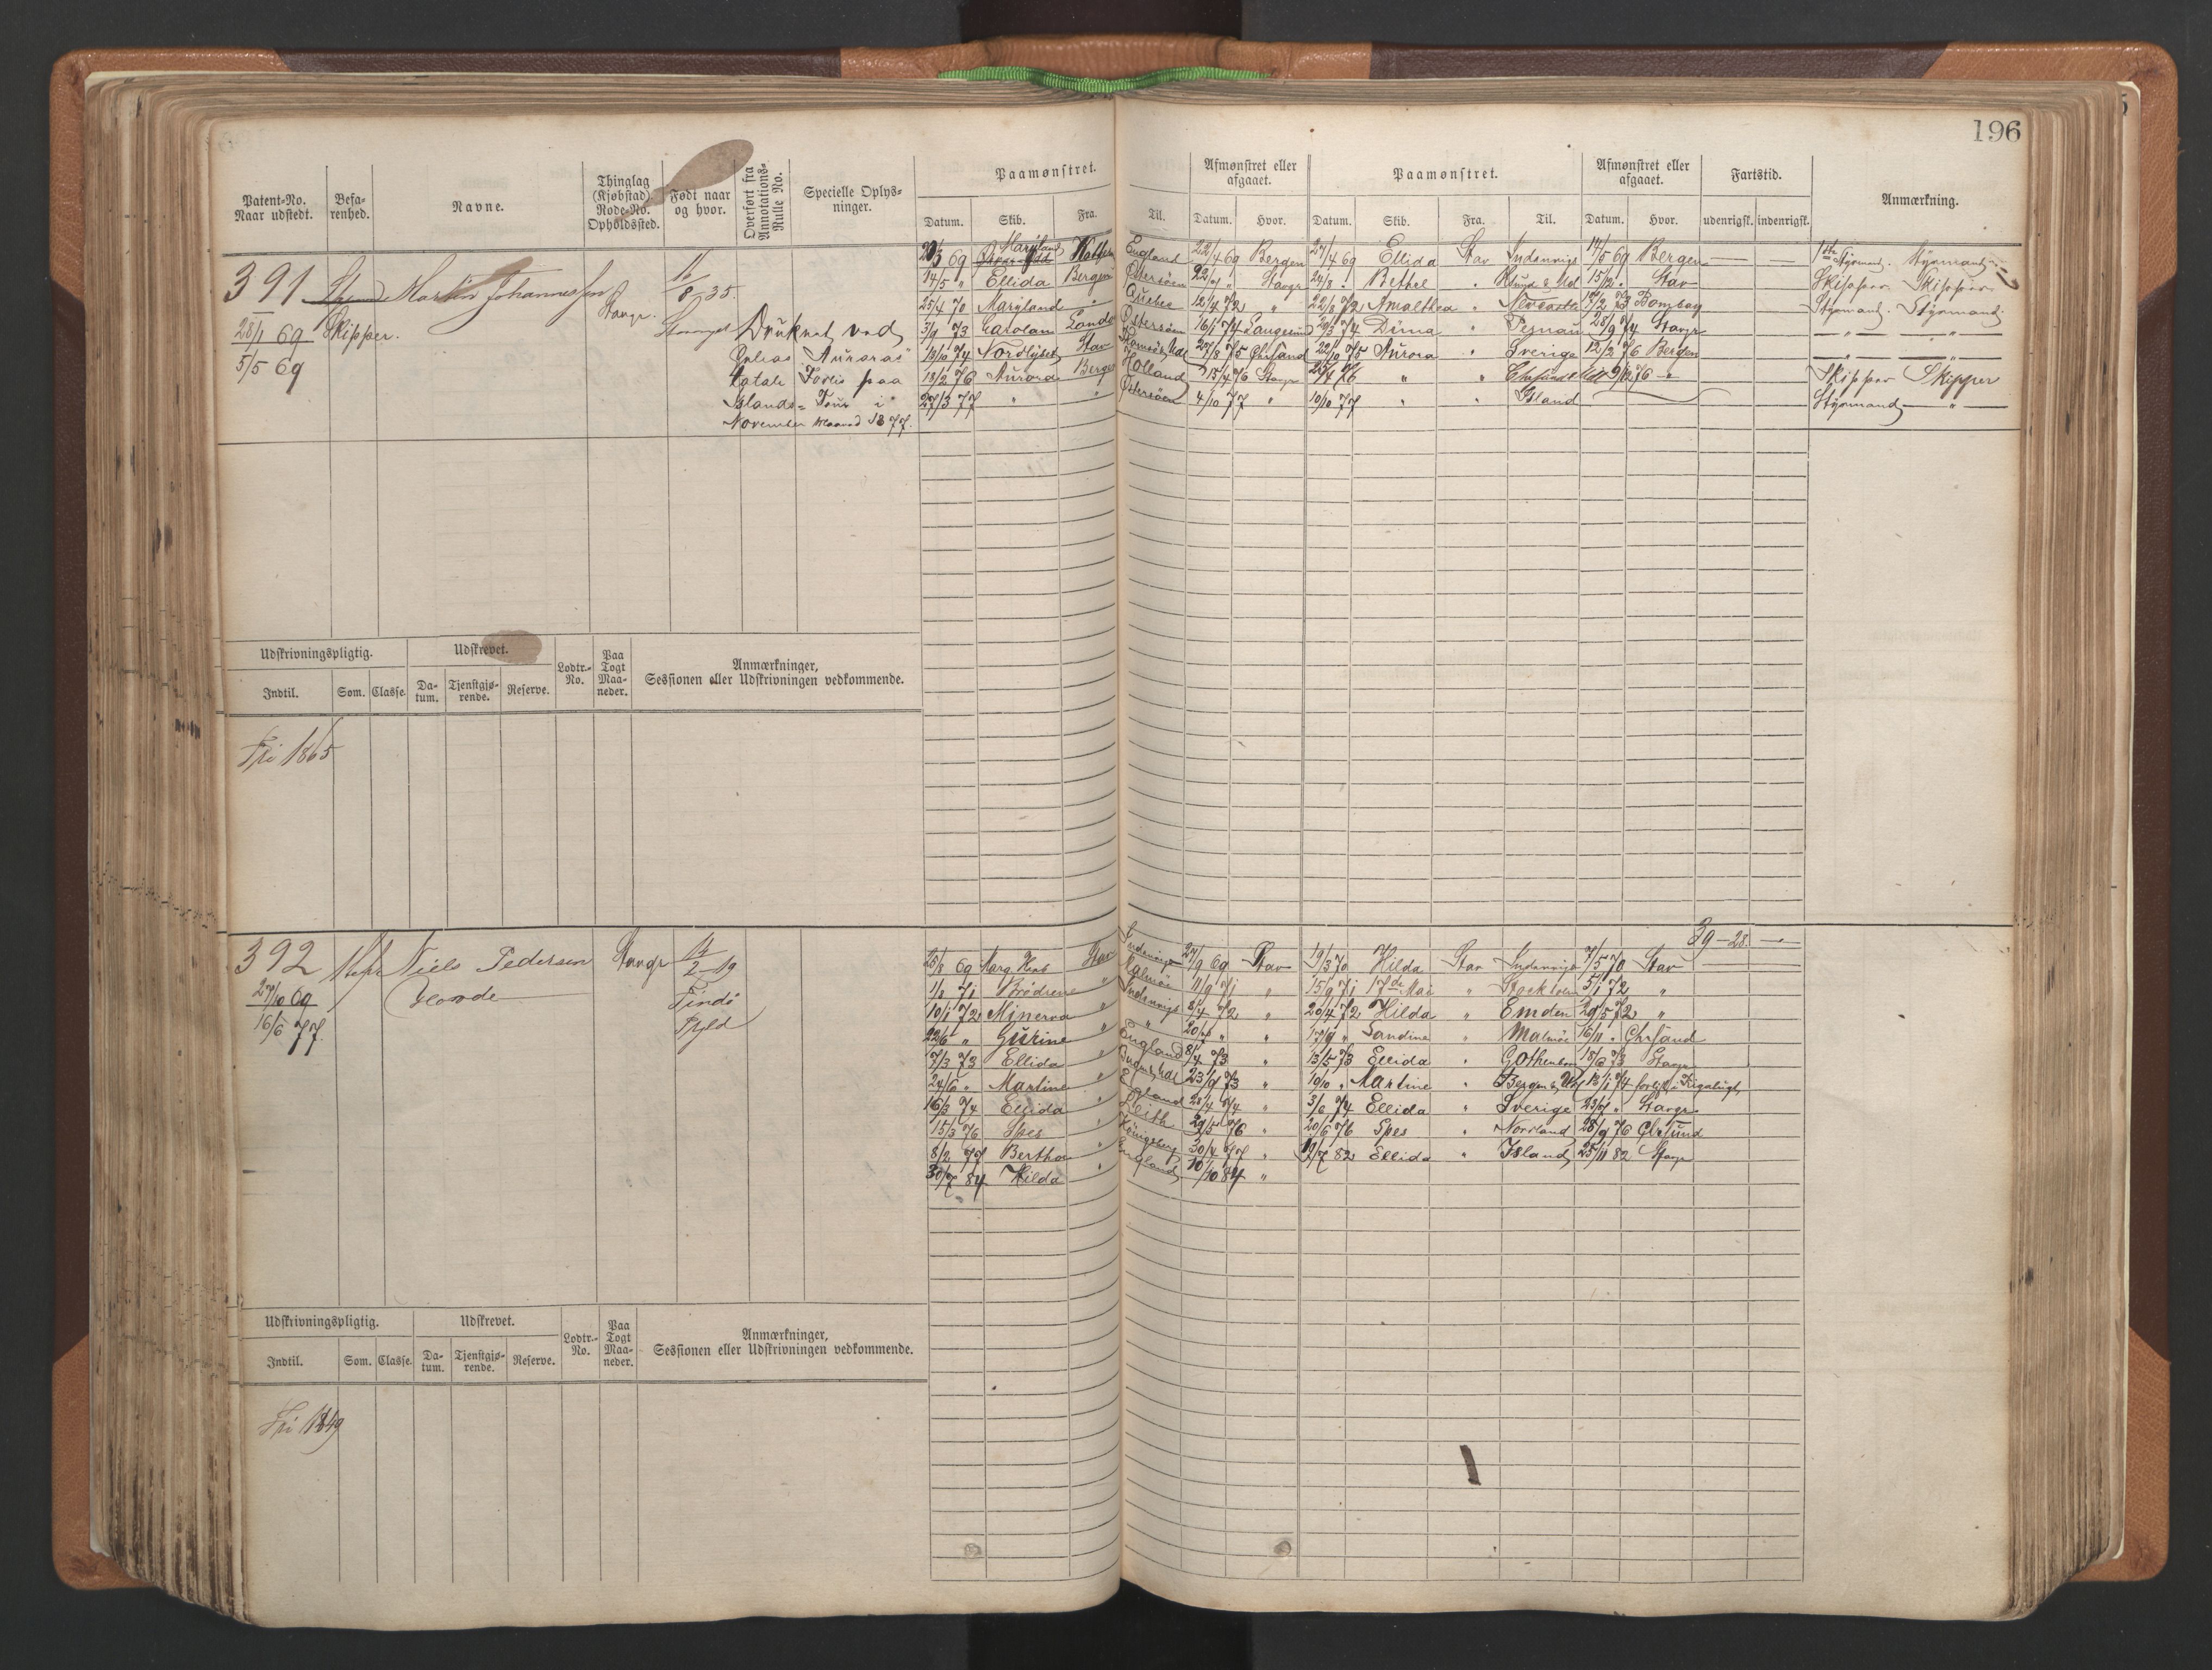 196
Patent-No. Naar udstedt.
Befarenhed.
Navne.
Thinglag (Kjøbstad) Rode-No. Opholdssted.
Født naar og hvor.
Overført fra Annotations-Rulle No.
Specielle Oplysninger.
Paamønstret.
Datum. Skib. Fra. Til.
Afmønstret eller afgaaet.
Datum. Hvor.
Paamønstret.
Datum. Skib. Fra. Til.
Afmønstret eller afgaaet.
Datum. Hvor.
Fartstid.
udenrigsk. indenrigsk.
Anmærkning.
391 Martin Johannessen Stavgr. 11/8 35.
28/1 69 Skipper. Stavanger
5/5 69
Druknet ved
Aurora's
totale Forlis paa
Islands-Tour i
November Maaned 1877.
Maryland England 22/4 69 Bergen 27/4 69 Ellida Stav Indenrigs 14/5 69 Bergen
14/5 " Ellida Bergen Østersøen Stavgr 24/8 " Bethel " 15/12 " Stav Skipper. Skipper.
25/4 70 Maryland " Quebec 12/4 72 " 22/8 72 Amalthea " Newcastle 73 Bombay Styrmand. Styrmand.
3/9 73 Carolam Østersøen 16/1 74 Langesund 74 Dina " Pernau 28/9 74 Stavgr
13/10 74 Nordlyset Stav 27/8 75 Chrsand 22/10 75 Aurora " Sverige 12/2 76 Bergen
18/2 76 Aurora Bergen Holland 15/4 76 Stavgr 76 " " 76 Skipper Skipper
27/3 77 " " Østersøen 4/10 77 " 10/10 77 " " Island Styrmand
Udskrivningspligtig.
Indtil. Som. Classe.
Udskrevet.
Datum. Tjenstgjørende. Reserve.
Lodtr.-No.
Paa Togt Maaneder.
Anmærkninger, Sessionen eller Udskrivningen vedkommende.
Fri 1865
392 Niels Pedersen Stavgr 2-19
27/10 69 Findø
16/6 77.
39-28.
25/8 69 Stav Indenrigs 27/9 69 Stav 19/3 70 Hilda Stav Indenrigs 7/5 70 Stav
1/8 71 Brødrene " Malmø 11/9 71 " 15/9 71 17de Mai " Stockholm 5/1 72 "
10/1 72 Minerva " Indenrigs 8/4 72 " 20/4 72 Hilda " Emden 29/5 72 "
22/6 " Gurine " " " " 17/9 " Sandine " Malmø 16/11 " Chrsand
7/3 73 Ellida " England 8/4 73 " 13/5 73 Ellida " Gothenborg 73 Stavgr
24/6 " Martine " 23/9 73 " 10/10 " Martine " Bergen 74
16/3 74 Ellida " England 28/4 74 " 3/6 74 Ellida " Sverige 23/7 " Stavgr
15/3 76 Spes " Leith 29/5 76 " 20/6 76 Spes " Nordland 28/9 76 Chrsund
8/2 77 Bertha " Königsberg 30/4 77 " 12/7 82 Ellida " Island 25/11 82 Stavgr
30/7 84 Hilda " England 10/10 84 "
Udskrivningspligtig.
Indtil. Som. Classe.
Udskrevet.
Datum. Tjenstgjørende. Reserve.
Lodtr.-No.
Paa Togt Maaneder.
Anmærkninger, Sessionen eller Udskrivningen vedkommende.
Fri 1849